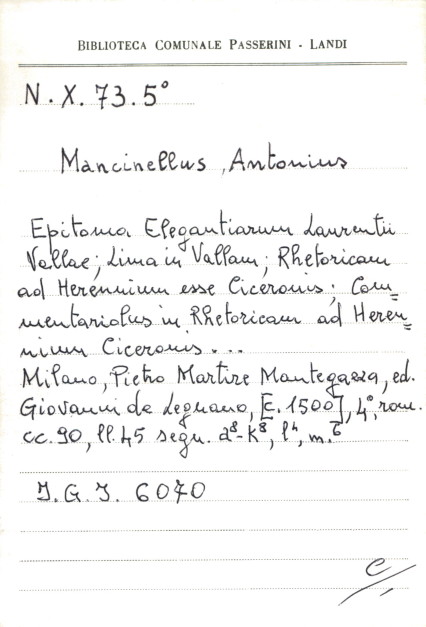 BIBLIOTECA COMUNALE PASSERINI - LANDI
N. X. 73. 5°
Mancinellus, Antonius
Epitoma Elegantiarum Laurentii
Vallae; Lima in Vallam; Rhetoricam
ad Herennium esse Ciceronis; Com=
mentariolus in Rhetoricam ad Heren=
nium Ciceronis...
Milano, Pietro Martire Mantegazza, ed.
Giovanni da Legnano, [c. 1500], 4°, rom.
cc. 90, ll. 45 segn. a⁸-k⁸, l⁴, m.⁶
I.G.I. 6070
C